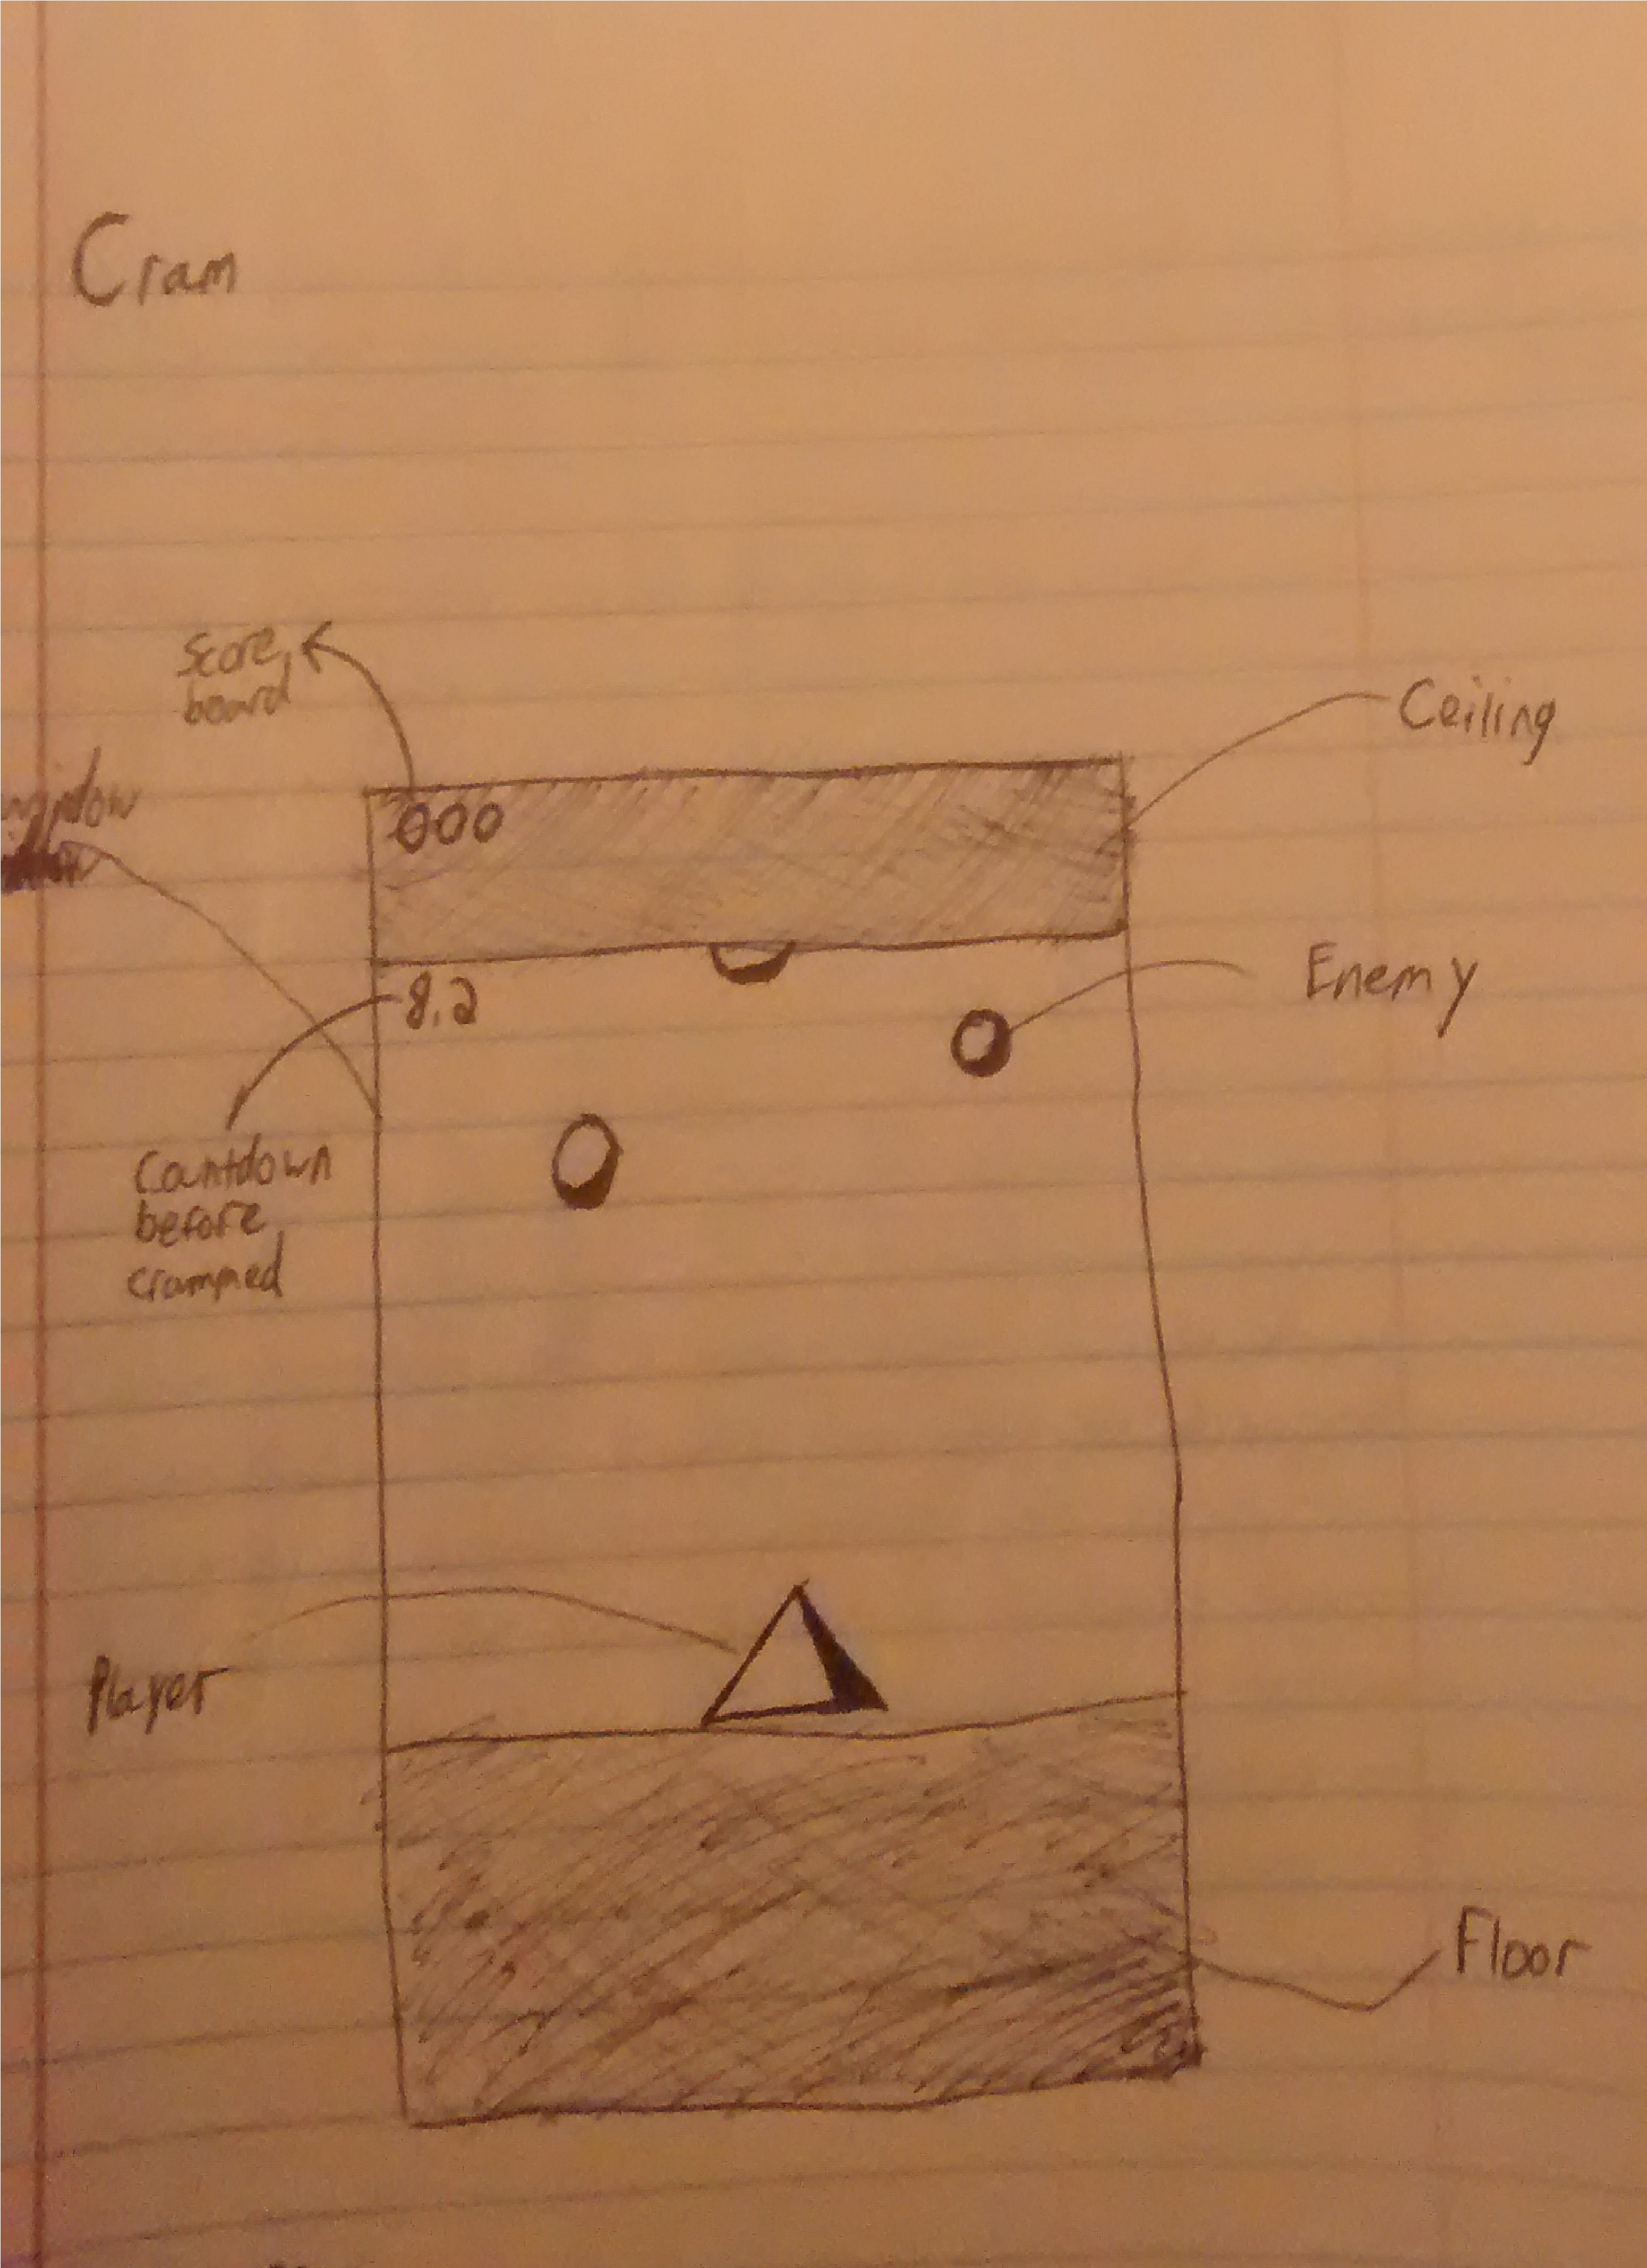 Cram
Score
board
Ceiling
window
000
Enemy
8.2
Countdown
before
crammed
Player
Floor